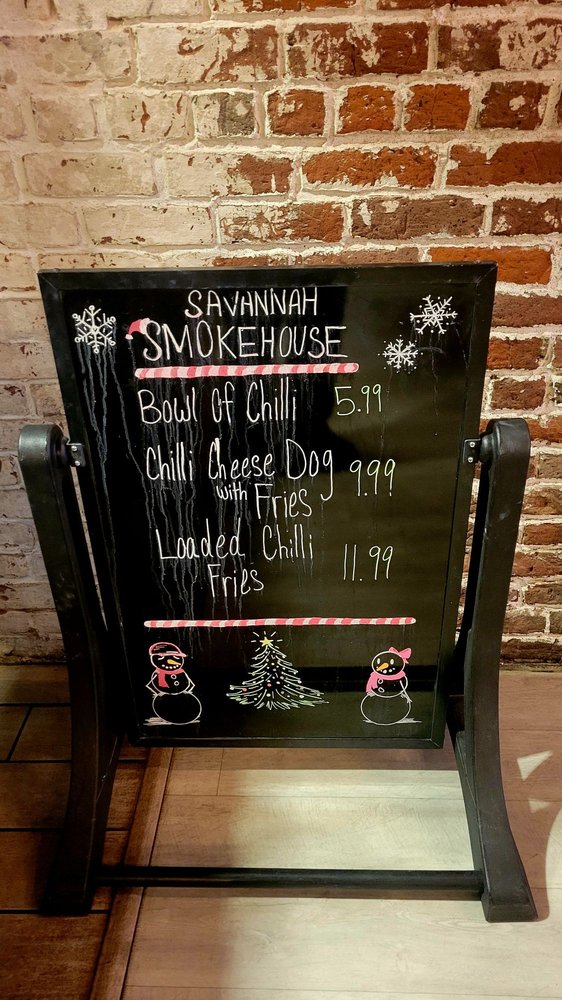 SAVANNAH
SMOKEHOUSE
Bowl Of Chilli 5.99
Chilli Cheese Dog 9.99
with Fries
Loaded Chilli 11.99
Fries